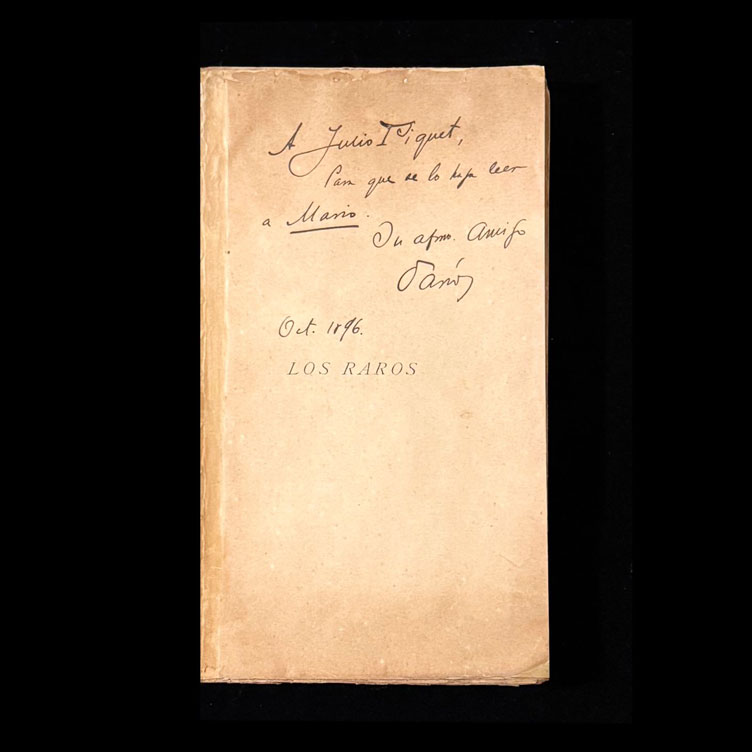 A Julio Piquet,
Para que se lo haga leer
a Mario.
Su afmo. Amigo
Darío
Oct. 1896.
LOS RAROS